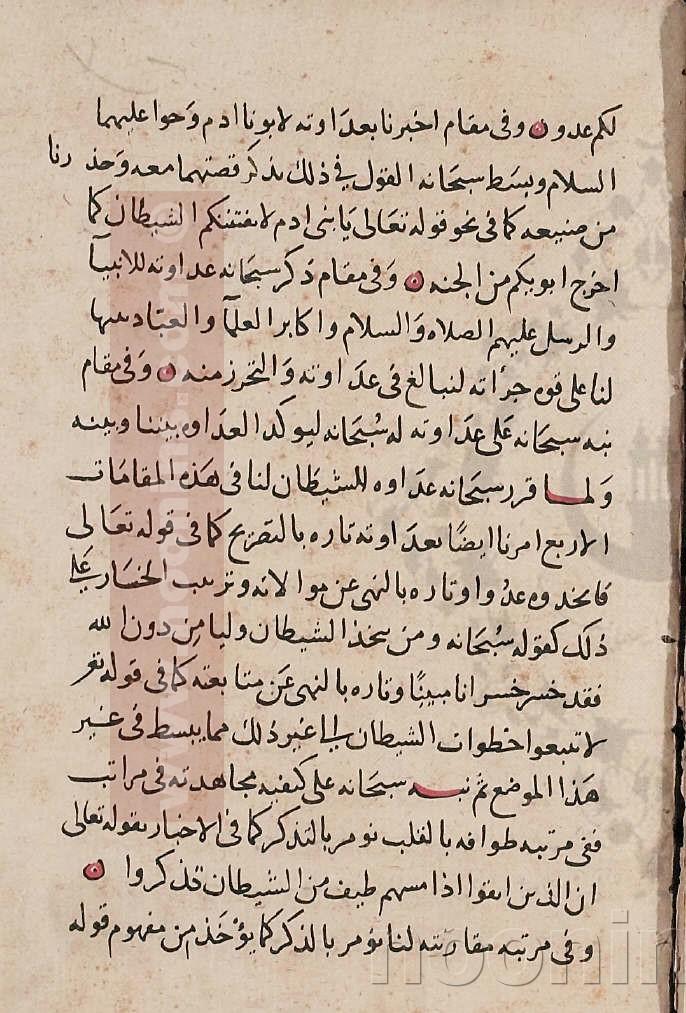 لكم عدو ۞ وفى مقام اخبرنا بعداوته لابونا ادم وحوا عليهما
السلام وبسط سبحانه القول في ذلك بذكر قصتهما معه وحذرنا
من صنيعه كما فى نحو قوله تعالى يا بنى ادم لا يفتننكم الشيطان كما
اخرج ابويكم من الجنه ۞ وفى مقام ذكر سبحانه عداوته للانبيآ
والرسل عليهم الصلاه والسلام واكابر العلمآ والعباد تنبيها
لنا على قوه جرأته لنبالغ فى عداوته والتحرز منه ۞ وفى مقام
نبه سبحانه على عداوته له سبحانه ليوكد العداوه بيننا وبينه
ولما قرر سبحانه عداوه الشيطان لنا فى هذه المقامات
الاربع امرنا ايضا بعداوته تاره بالتصريح كما فى قوله تعالى
فاتخذوه عدوا وتاره بالنهى عن موالاته وترتيب الخسار على
ذلك كقوله سبحانه ومن يتخذ الشيطان وليا من دون الله
فقد خسر خسرانا مبينا وتاره بالنهى عن متابعته كما فى قوله تعا
لا تتبعوا خطوات الشيطان الى غير ذلك مما يبسط فى غير
هذا الموضع ثم نبه سبحانه على كيفيه مجاهدته فى مراتب
ففى مرتبه طوافه بالقلب نومر بالتذكر كما فى الاخبار بقوله تعالى
ان الذين اتقوا اذا مسهم طيف من الشيطان تذكروا ۞
وفى مرتبه مقارنته لنا نؤمر بالذكر كما يؤخذ من مفهوم قوله
www.noorin
noorin